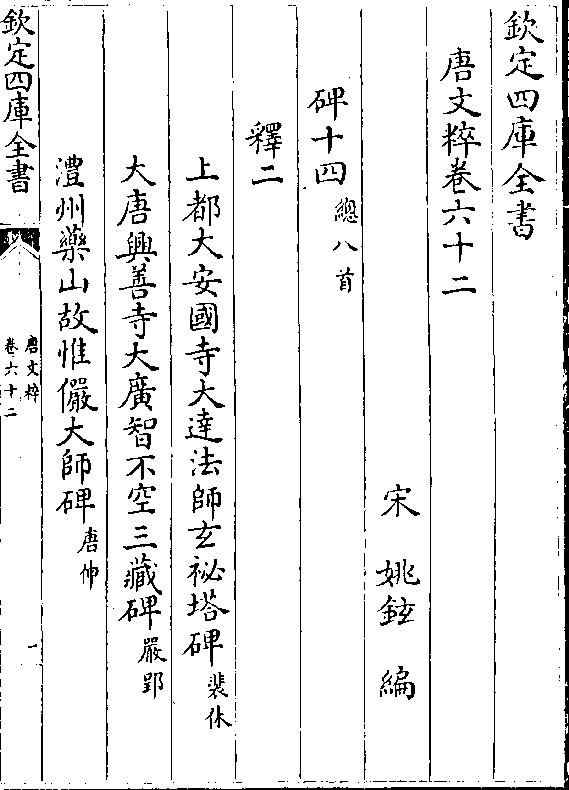 欽定四庫全書
唐文粹卷六十二
宋 姚鉉 編
碑十四 總八首
釋二
上都大安國寺大達法師玄祕塔碑 裴休
大唐興善寺大廣智不空三藏碑 嚴郢
澧州藥山故惟儼大師碑 唐伸
欽定四庫全書
唐文粹
卷六十二
一